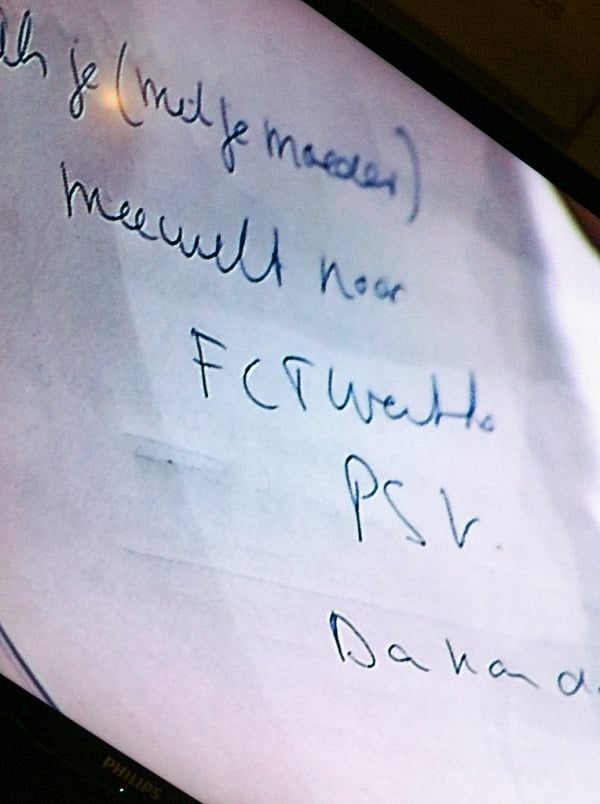 Als je (met je moeder)
meewilt naar
FC Twente
PSV.
Dan kan d
PHILIPS